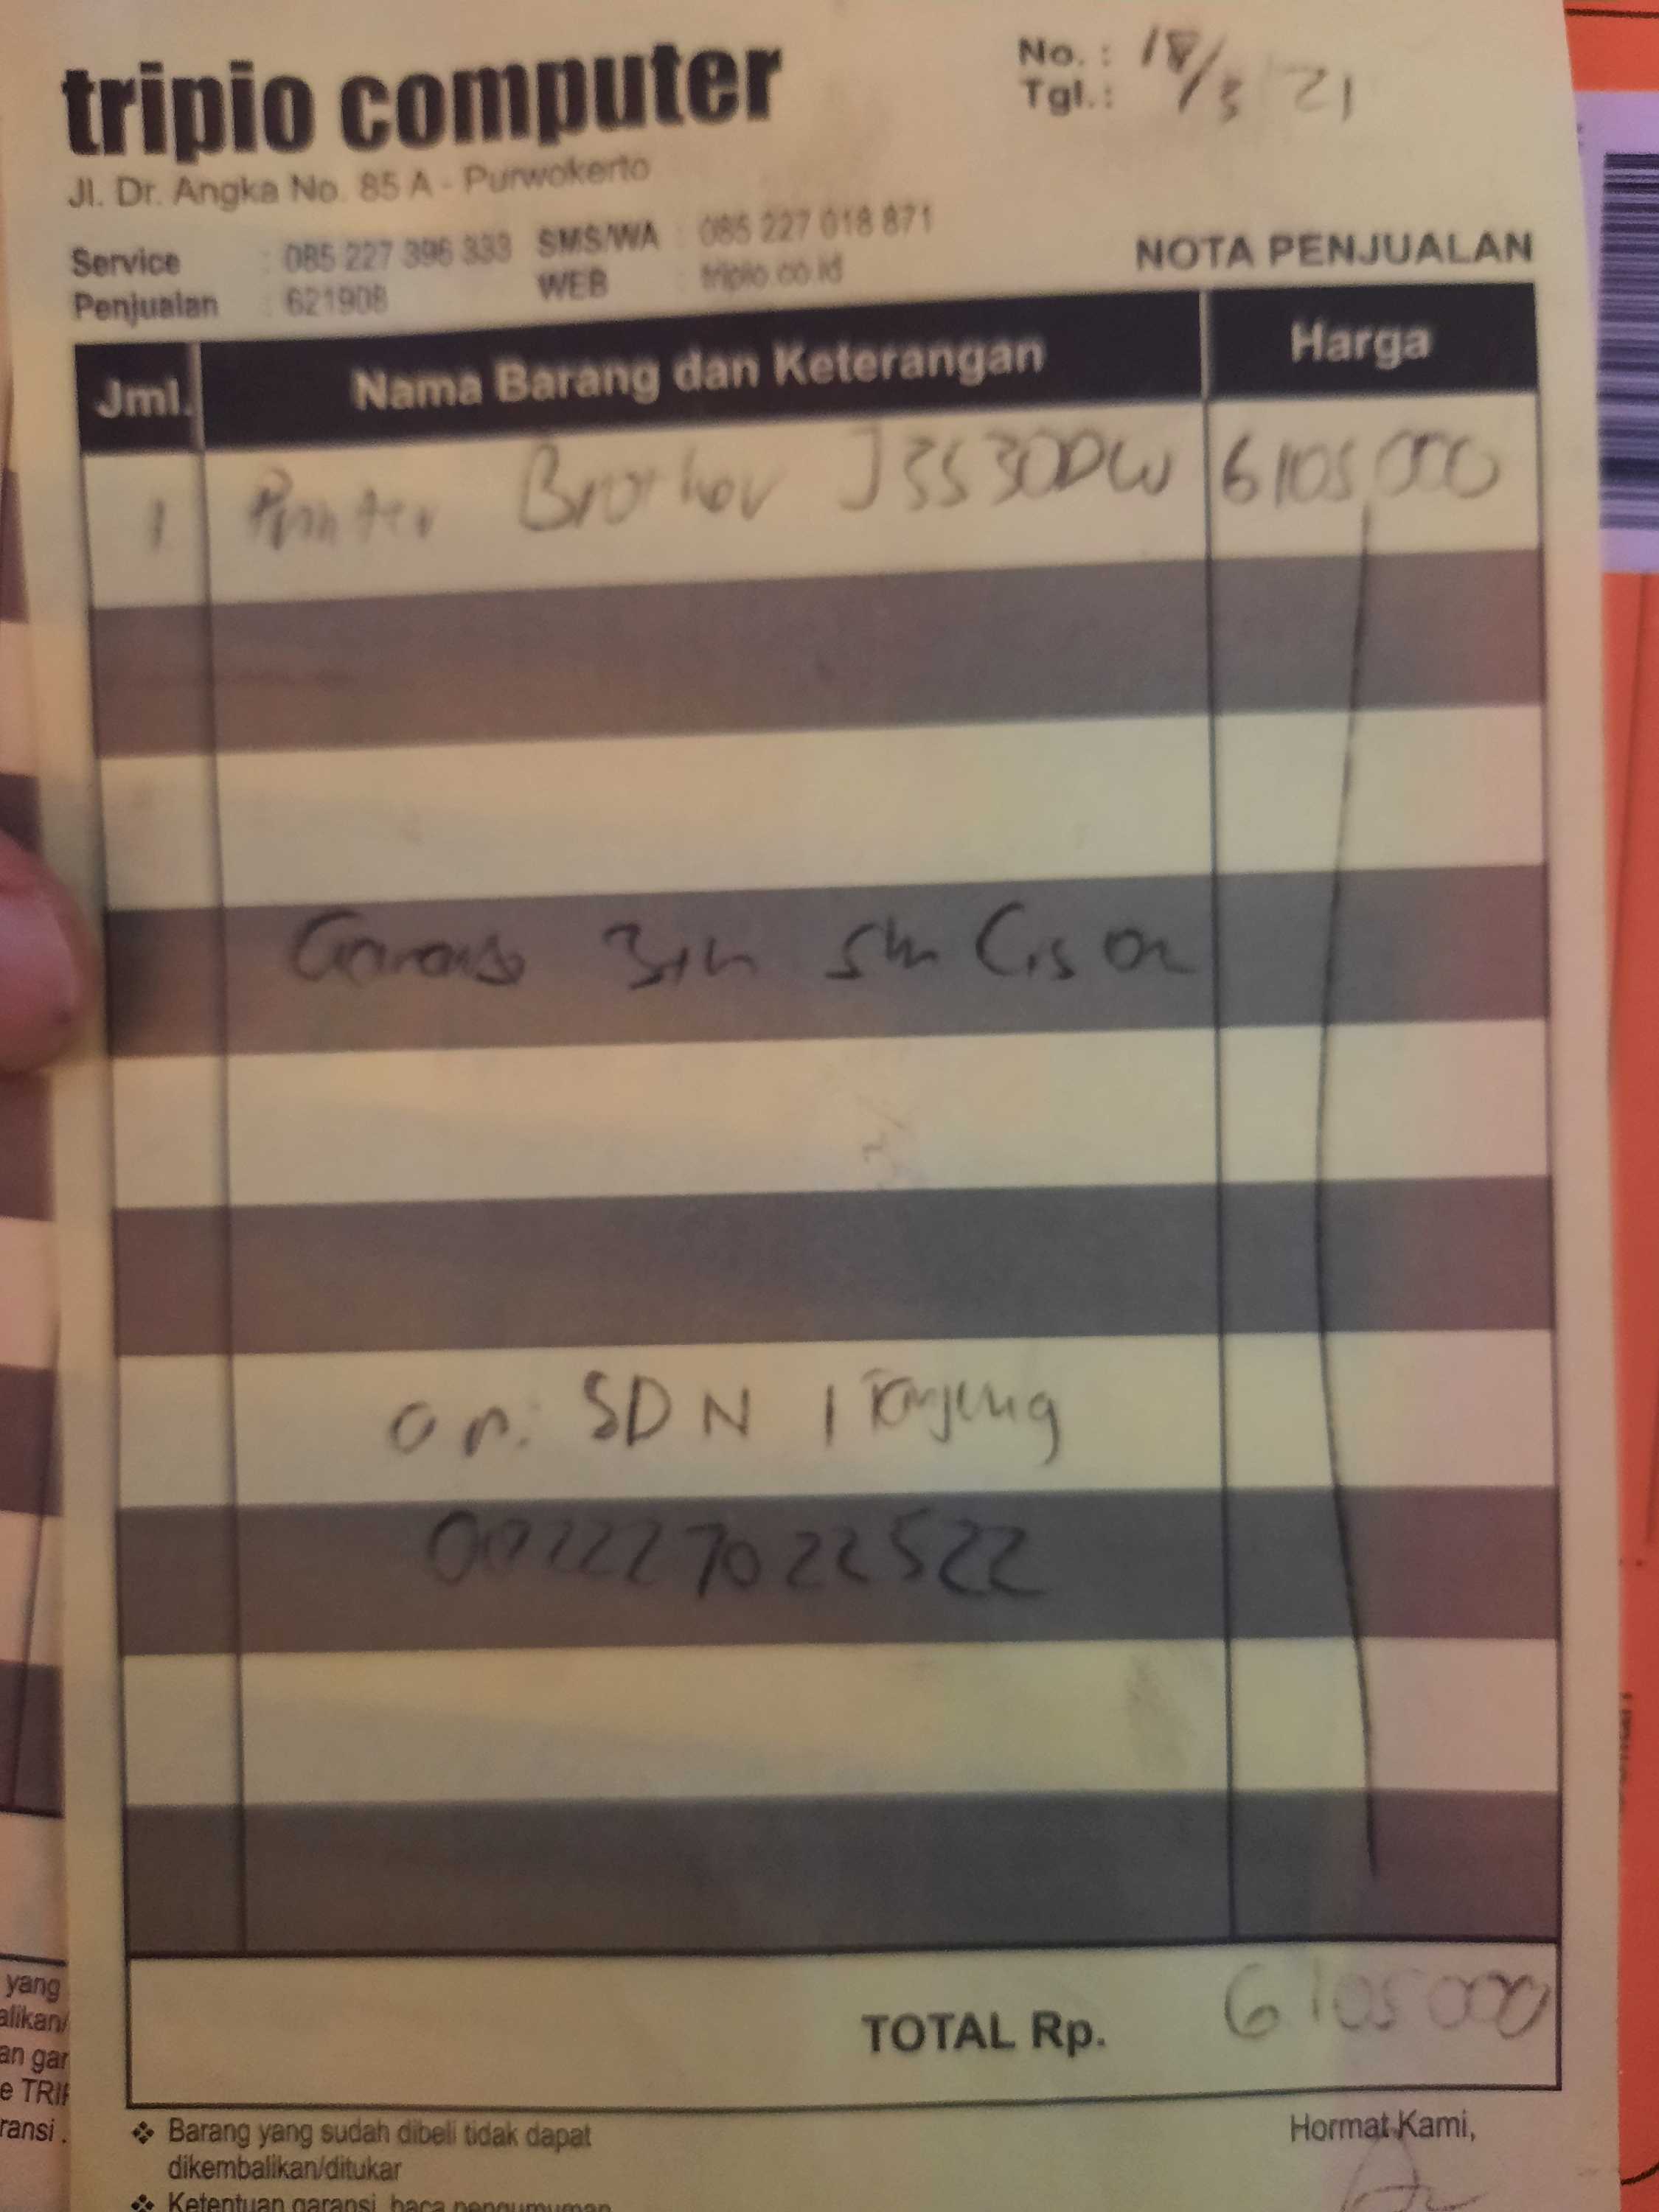 tripio computer
No. :
Tgl. : 18/3 21
Jl. Dr. Angka No. 85 A - Purwokerto
Service : 085 227 396 333 SMS/WA : 085 227 018 871
Penjualan : 621908 WEB : tripio.co.id
NOTA PENJUALAN
Jml. Nama Barang dan Keterangan Harga
1 Printer Brother J3530DW 6105000
Garansi 3th
a.n. SDN 1 Tanjung
TOTAL Rp. 6105000
❖ Barang yang sudah dibeli tidak dapat
dikembalikan/ditukar
❖ Ketentuan garansi, baca pengumuman
Hormat Kami,
yang
alikan/
an gar
e TRIP
ransi .